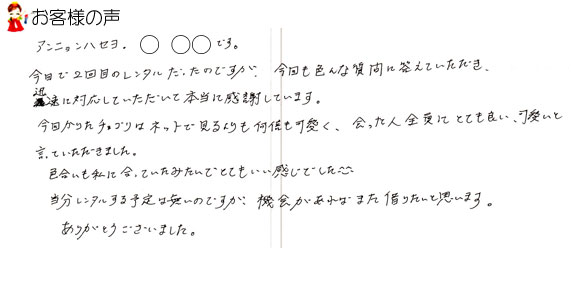 お客様の声
アンニョンハセヨ。 ◯ ◯◯です。
今日で2回目のレンタルだったのですが、今回も色んな質問に答えていただき、
迅速に対応していただいて本当に感謝しています。
今回かりたチョゴリはネットで見るよりも何倍も可愛く、会った人全員にとても良い、可愛いと
言っていただきました。
色合いも私に合っていたみたいでとてもいい感じでした^^
当分レンタルする予定は無いのですが、機会があればまた借りたいと思います。
ありがとうございました。